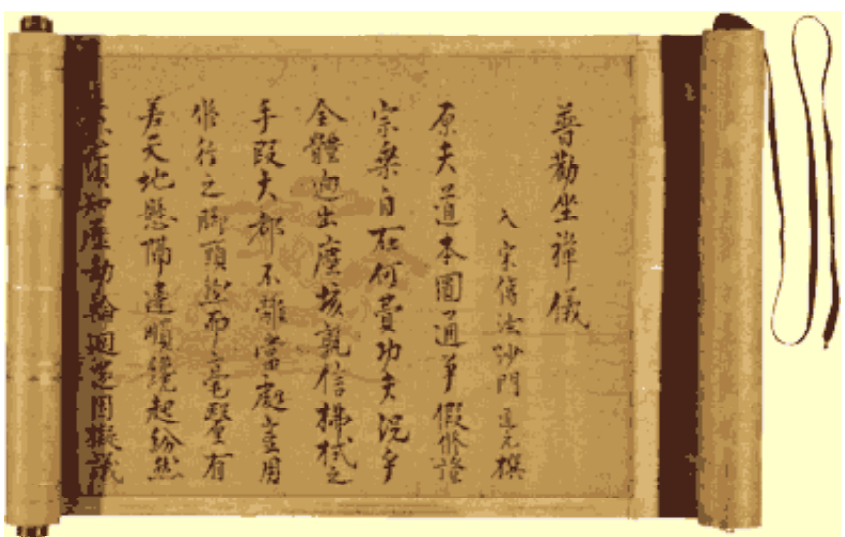 普勸坐禪儀
入宋傳法沙門道元撰
原夫道本圓通爭假修證
宗乘自在何費功夫況乎
全體迥出塵埃孰信拂拭之
手段大都不離當處豈用
修行之脚頭然而毫釐有
差天地懸隔違順纔起紛然
須知歷劫輪迴還因擬議